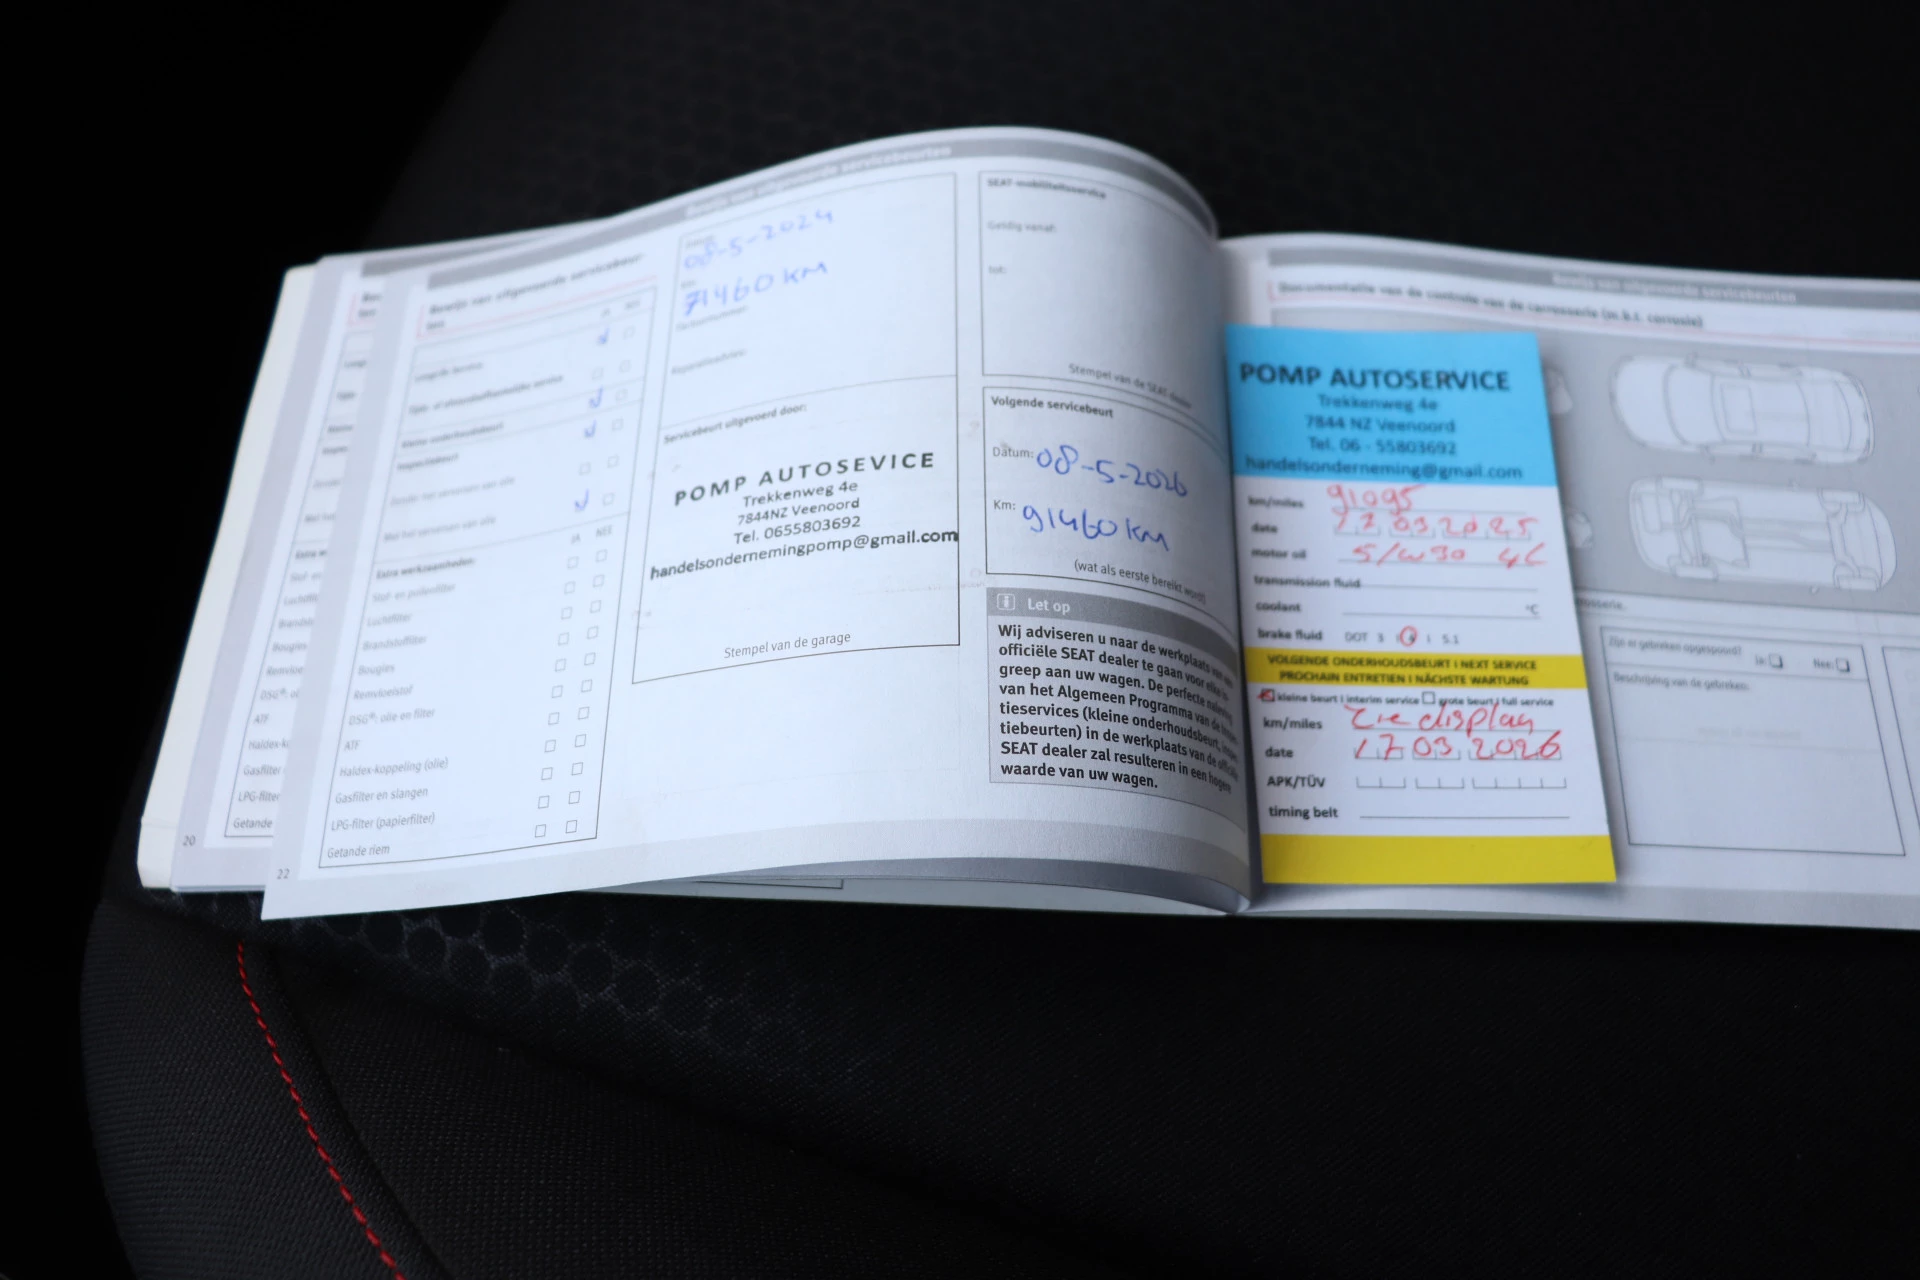 Bewijs van uitgevoerde servicebeurten
Bewijs van uitgevoerde servicebeur-
ten
JA NEE
Longlife Service
Tijds- of afstandsafhankelijke service
Kleine onderhoudsbeurt
Inspectiebeurt
Zonder het verversen van olie
Met het verversen van olie
JA NEE
Extra werkzaamheden:
Stof- en pollenfilter
Luchtfilter
Brandstoffilter
Bougies
Remvloeistof
DSG®: olie en filter
ATF
Haldex-koppeling (olie)
Gasfilter en slangen
LPG-filter (papierfilter)
Getande riem
22
20
Luchtfilt
Bougies
Remvloe
DSG®: ol
ATF
Haldex-k
Gasfilter
LPG-filter
Getande
08-5-2024
71460 KM
Servicebeurt uitgevoerd door:
POMP AUTOSEVICE
Trekkenweg 4e
7844NZ Veenoord
Tel. 0655803692
handelsondernemingpomp@gmail.com
Stempel van de garage
SEAT-mobiliteitsservice
Geldig vanaf:
tot:
Stempel van de SEAT dealer
Volgende servicebeurt
Datum: 08-5-2026
Km: 91460 KM
(wat als eerste bereikt wordt)
Let op
Wij adviseren u naar de werkplaats van een
officiële SEAT dealer te gaan voor elke in-
greep aan uw wagen. De perfecte naleving
van het Algemeen Programma van de Inspec-
tieservices (kleine onderhoudsbeurt, inspec-
tiebeurten) in de werkplaats van de officiële
SEAT dealer zal resulteren in een hogere
waarde van uw wagen.
Bewijs van uitgevoerde servicebeurten
Documentatie van de controle van de carrosserie (m.b.t. corrosie)
POMP AUTOSERVICE
Trekkenweg 4e
7844 NZ Veenoord
Tel. 06 - 55803692
handelsonderneming@gmail.com
km/miles 91095
date 17 03 2025
motor oil 5/w30 4L
transmission fluid
coolant °C
brake fluid DOT 3 | 4 | 5.1
VOLGENDE ONDERHOUDSBEURT | NEXT SERVICE
PROCHAIN ENTRETIEN | NÄCHSTE WARTUNG
kleine beurt | interim service grote beurt | full service
km/miles Zie display
date 17 03 2026
APK/TÜV
timing belt
rosserie.
Zijn er gebreken opgespoord? Ja: Nee:
Beschrijving van de gebreken: